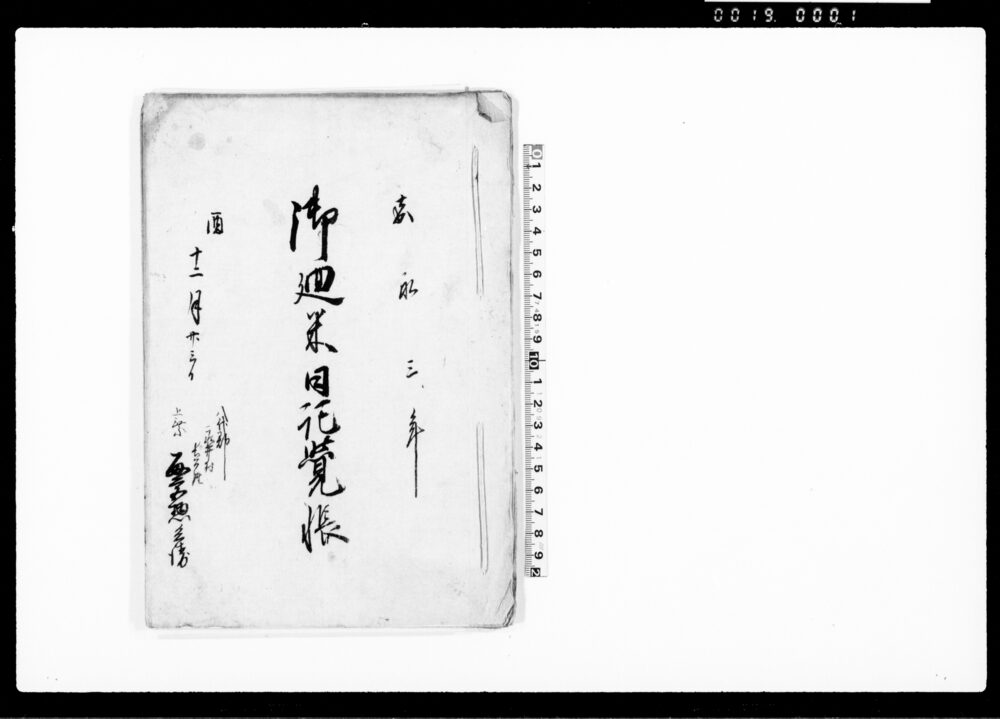 0019. 0001
嘉永三年
御廻米日記覚帳
酉十二月廿三日
八代郡
村
上乗
0 1 2 3 4 5 6 7 8 9 10 1 2 3 4 5 6 7 8 9 2